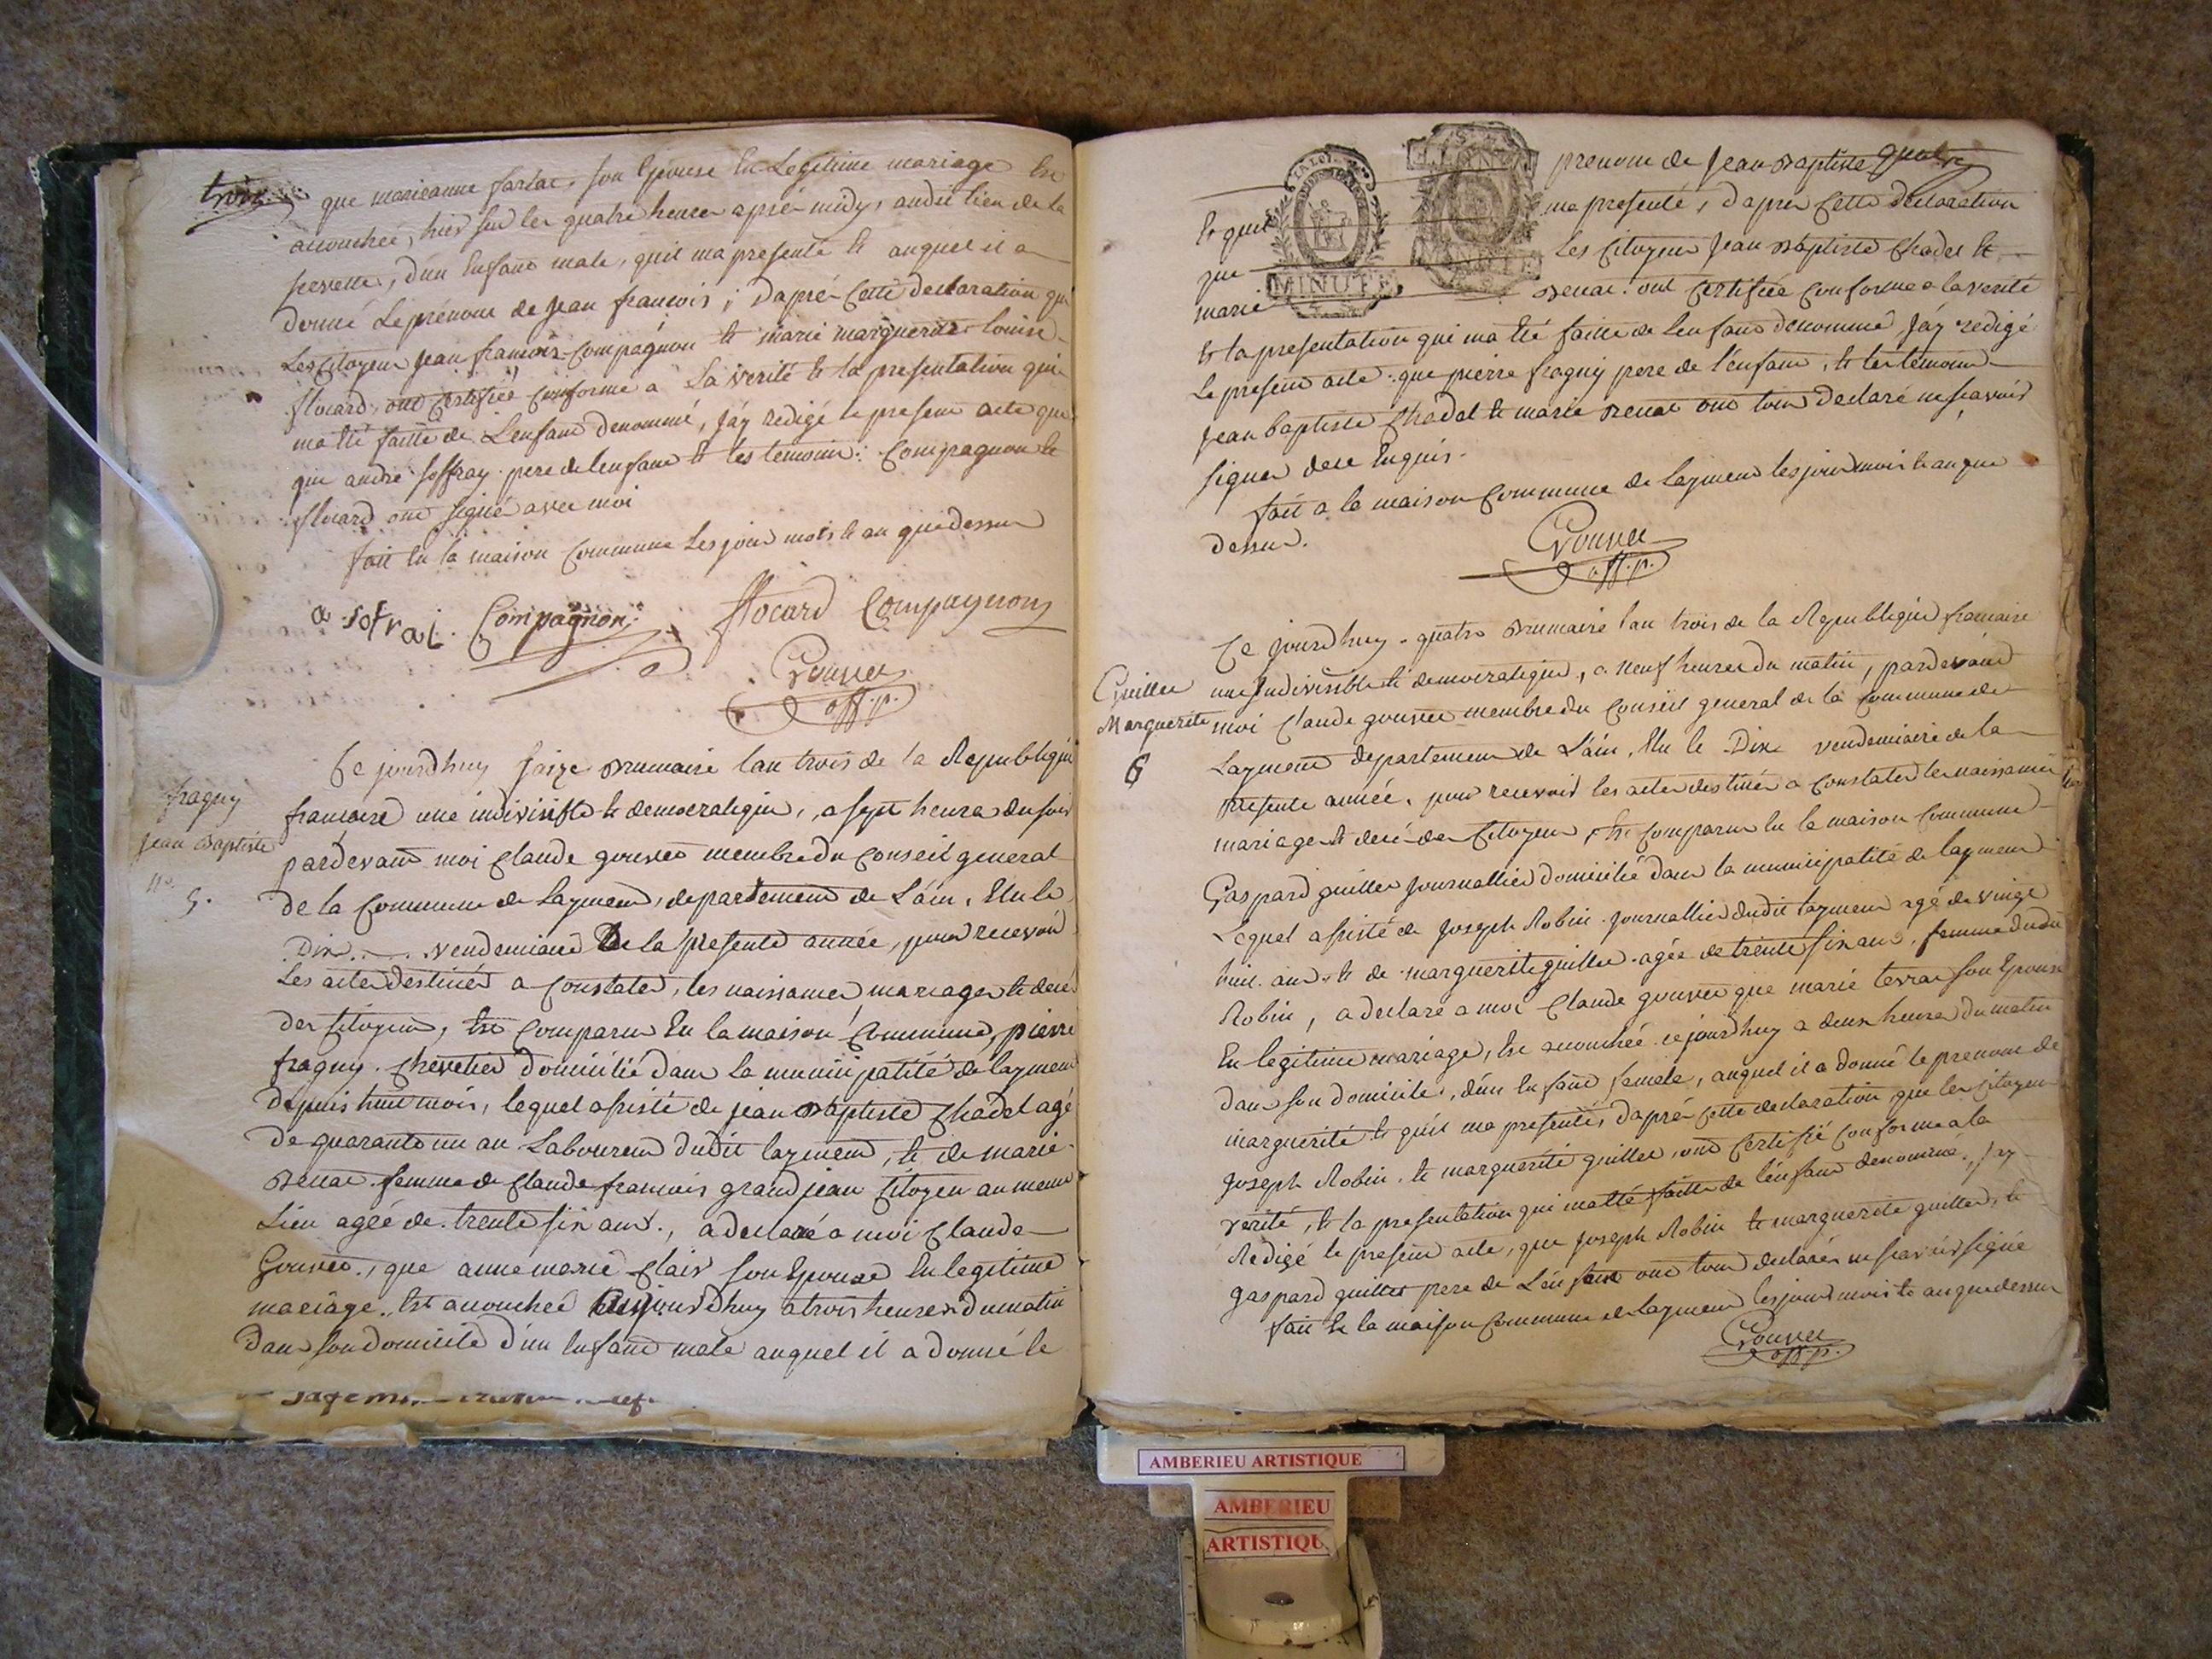 trois
que marieanne farlac, son Epouse En Legitime mariage Est
acouchée, hier sur les quatre heures aprés midy, audit lieu de la
servette, d'un Enfant male, quil ma presenté et auquel il a
donné Le prénom de Jean francois ; daprés Cette declaration que
Les Citoyens Jean francois Compagnon et marie marguerite louise
flocard, ont Certifiée Conforme a La verité et la presentation qui
ma eté faitte de L'enfant denommé, J'ay redigé le present acte que
que andré soffray pere de lenfant et les temoins : Compagnon et
flocard ont signé avec moi
fait En la maison Commune Les jour mois et an que dessus
a sofrai Compagnon flocard Compagnon
Gouvee
off. p.
fraguy
Jean Baptiste
no.
5.
Ce jourdhuy saize Brumaire lan trois de la Republique
francaise une indivisible et democratique, a sept heures du soir
pardevant moi Claude gouvee membre du Conseil general
de la Commune de Layment, departement de L'ain, Elu le
Dix vendemiaire de la presente année, pour recevoir
Les actes destinés a Constater, les naissances, mariages et decés
des Citoyens, Est Comparu En la maison Commune, pierre
fraguy. Chevetier domicilié dans la municipalité de layment
depuis huit mois, lequel assisté de jean Baptiste Chadel agé
de quarante un an Laboureur dudit layment, et de marie
Benac femme de Claude francois grandjean Citoyen au meme
Lieu agée de trente six ans, a declaré a moi Claude
Gouvee, que anne marie Clair son Epouse En legitime
mariage, Est acouchée aujourdhuy a trois heures du matin
dans son domicile d'un Enfant male auquel il a donné le
LA LOI
MINUTE
prenom de Jean Baptiste quatre
Et quil ma presenté, daprés Cette declaration
que Les Citoyens Jean Baptiste Chadel et
marie Benac ont Certifiée Conforme a la verité
et la presentation qui ma eté faitte de lenfant denommé, J'ay redigé
Le present acte que pierre fraguy pere de l'enfant, et les temoins
Jean baptiste Chadel et marie Benac ont tous declaré ne scavoir
signer de ce Enquis.
fait a la maison Commune de Layment les jour mois et an que
dessus.
Gouvee
off. p.
Guiller
Marguerite
6
Ce jourdhuy quatre Brumaire lan trois de la Republique francaise
une Indivisible et democratique, a neuf heures du matin, pardevant
moi Claude gouvee membre du Conseil general de la Commune de
Layment departement de L'ain, Elu le Dix vendemiaire de la
presente année, pour recevoir les actes destinés a Constater les naissances
mariages et decés des Citoyens, Est Comparu En la maison Commune
Gaspard guiller Journallier domicilié dans la municipalité de layment
Lequel assisté de Joseph Robin Journallier dudit layment agé de vingt
huit ans, et de marguerite guiller agée de trente six ans, femme dudit
Robin, a declaré a moi Claude gouvee que marie terrac son Epouse
En legitime mariage, Est acouchée ce jourdhuy a deux heures du matin
dans son domicile, d'un Enfant femele, auquel il a donné le prenom de
marguerite et quil ma presentés, daprés Cette declaration que les Citoyens
Joseph Robin et marguerite guiller, ont Certifié Conforme a la
verité, et la presentation qui ma eté faitte de l'enfant denommé, J'ay
Redigé le present acte, que Joseph Robin et marguerite guiller, et
gaspard guiller pere de L'enfant ont tous declarés ne scavoir signé
fait En la maison Commune de layment les jour mois et an que dessus
Gouvee
off. p.
AMBERIEU ARTISTIQUE
AMBERIEU
ARTISTIQU